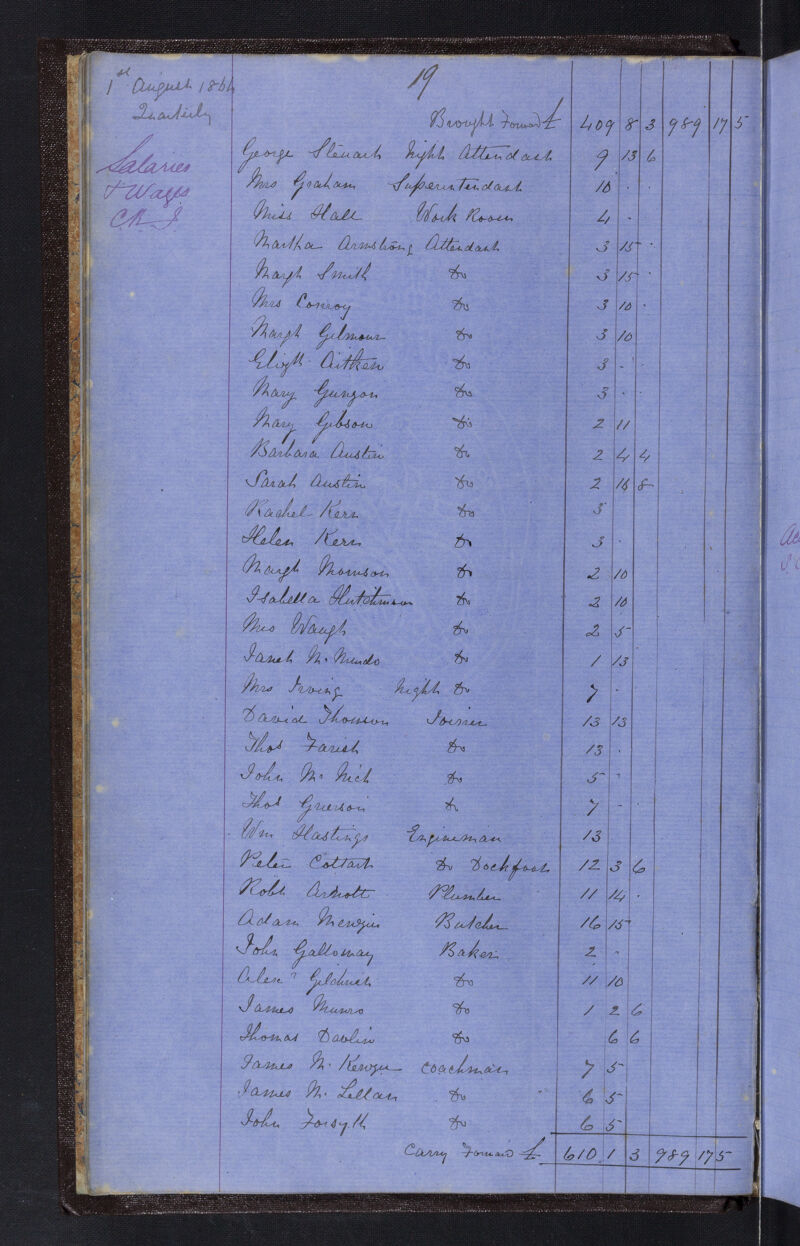 1st August 1864
19
Quarterly
Brought Forward £ 409 8 3 989 17 5
Salaries
& Wages
C R I
George Stewart Night Attendant 9 13 6
Mrs Graham Superintendant 10 . .
Miss Hall Work Room 4 .
Martha Armstrong Attendant 3 15 .
Margt Smith Do 3 15 .
Mrs Conroy Do 3 10 .
Margt Gilmour Do 3 10
Elizth Aitken Do 3 . .
Mary Gunyon Do 3 . .
Mary Gibson Do 2 11
Barbara Austin Do 2 4 4
Sarah Austin Do 2 16 8
Rachel Kerr Do 3
Helen Kerr Do 3 .
Margt Morrison Do 2 10
Isabella Hutchinson Do 2 10
Mrs Waugh Do 2 5
Janet McMurdo Do 1 13
Mrs Irving Night Do 7 .
David Thomson Joiner 13 13
Thos Farish Do 13 .
John McNich Do 5 .
Thos Grierson Do 7 . .
Wm Hastings Engineman 13
Peter Coltart Do Dockfoot 12 3 6
Robt Arnott Plumber 11 14 .
Adam Menzies Butcher 16 15
John Galloway Baker 2 .
Alexr Gilchrist Do 11 10
James Munro Do 1 2 6
Thomas Davlin Do 6 6
James McKenzie Coachman 7 5
James McLellan Do 6 5
John Forsyth Do 6 5
Carry Forward £ 610 1 3 989 17 5